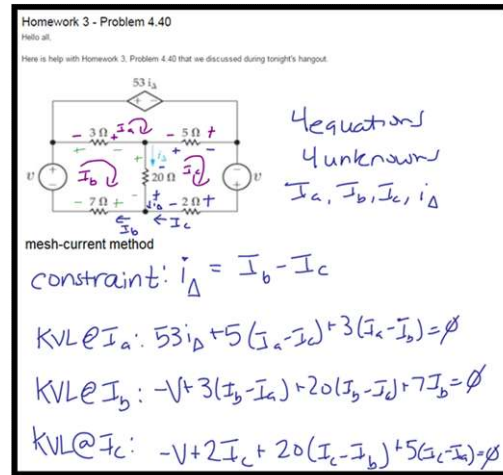 Homework 3 - Problem 4.40
Hello all,
Here is help with Homework 3, Problem 4.40 that we discussed during tonight's hangout.
53 iΔ
+ −
4 equations
4 unknowns
Ia, Ib, Ic, iΔ
− 3 Ω + Ia − 5 Ω +
+ − + iΔ + −
v + − Ib 20 Ω Ic − + v
− 7 Ω + − + iΔ − 2 Ω +
← Ib ← Ic
mesh-current method
constraint: iΔ = Ib - Ic
KVL@Ia: 53iΔ+5(Ia-Ic)+3(Ia-Ib)=∅
KVL@Ib: -V+3(Ib-Ia)+20(Ib-Ic)+7Ib=∅
KVL@Ic: -V+2Ic+20(Ic-Ib)+5(Ic-Ia)=∅